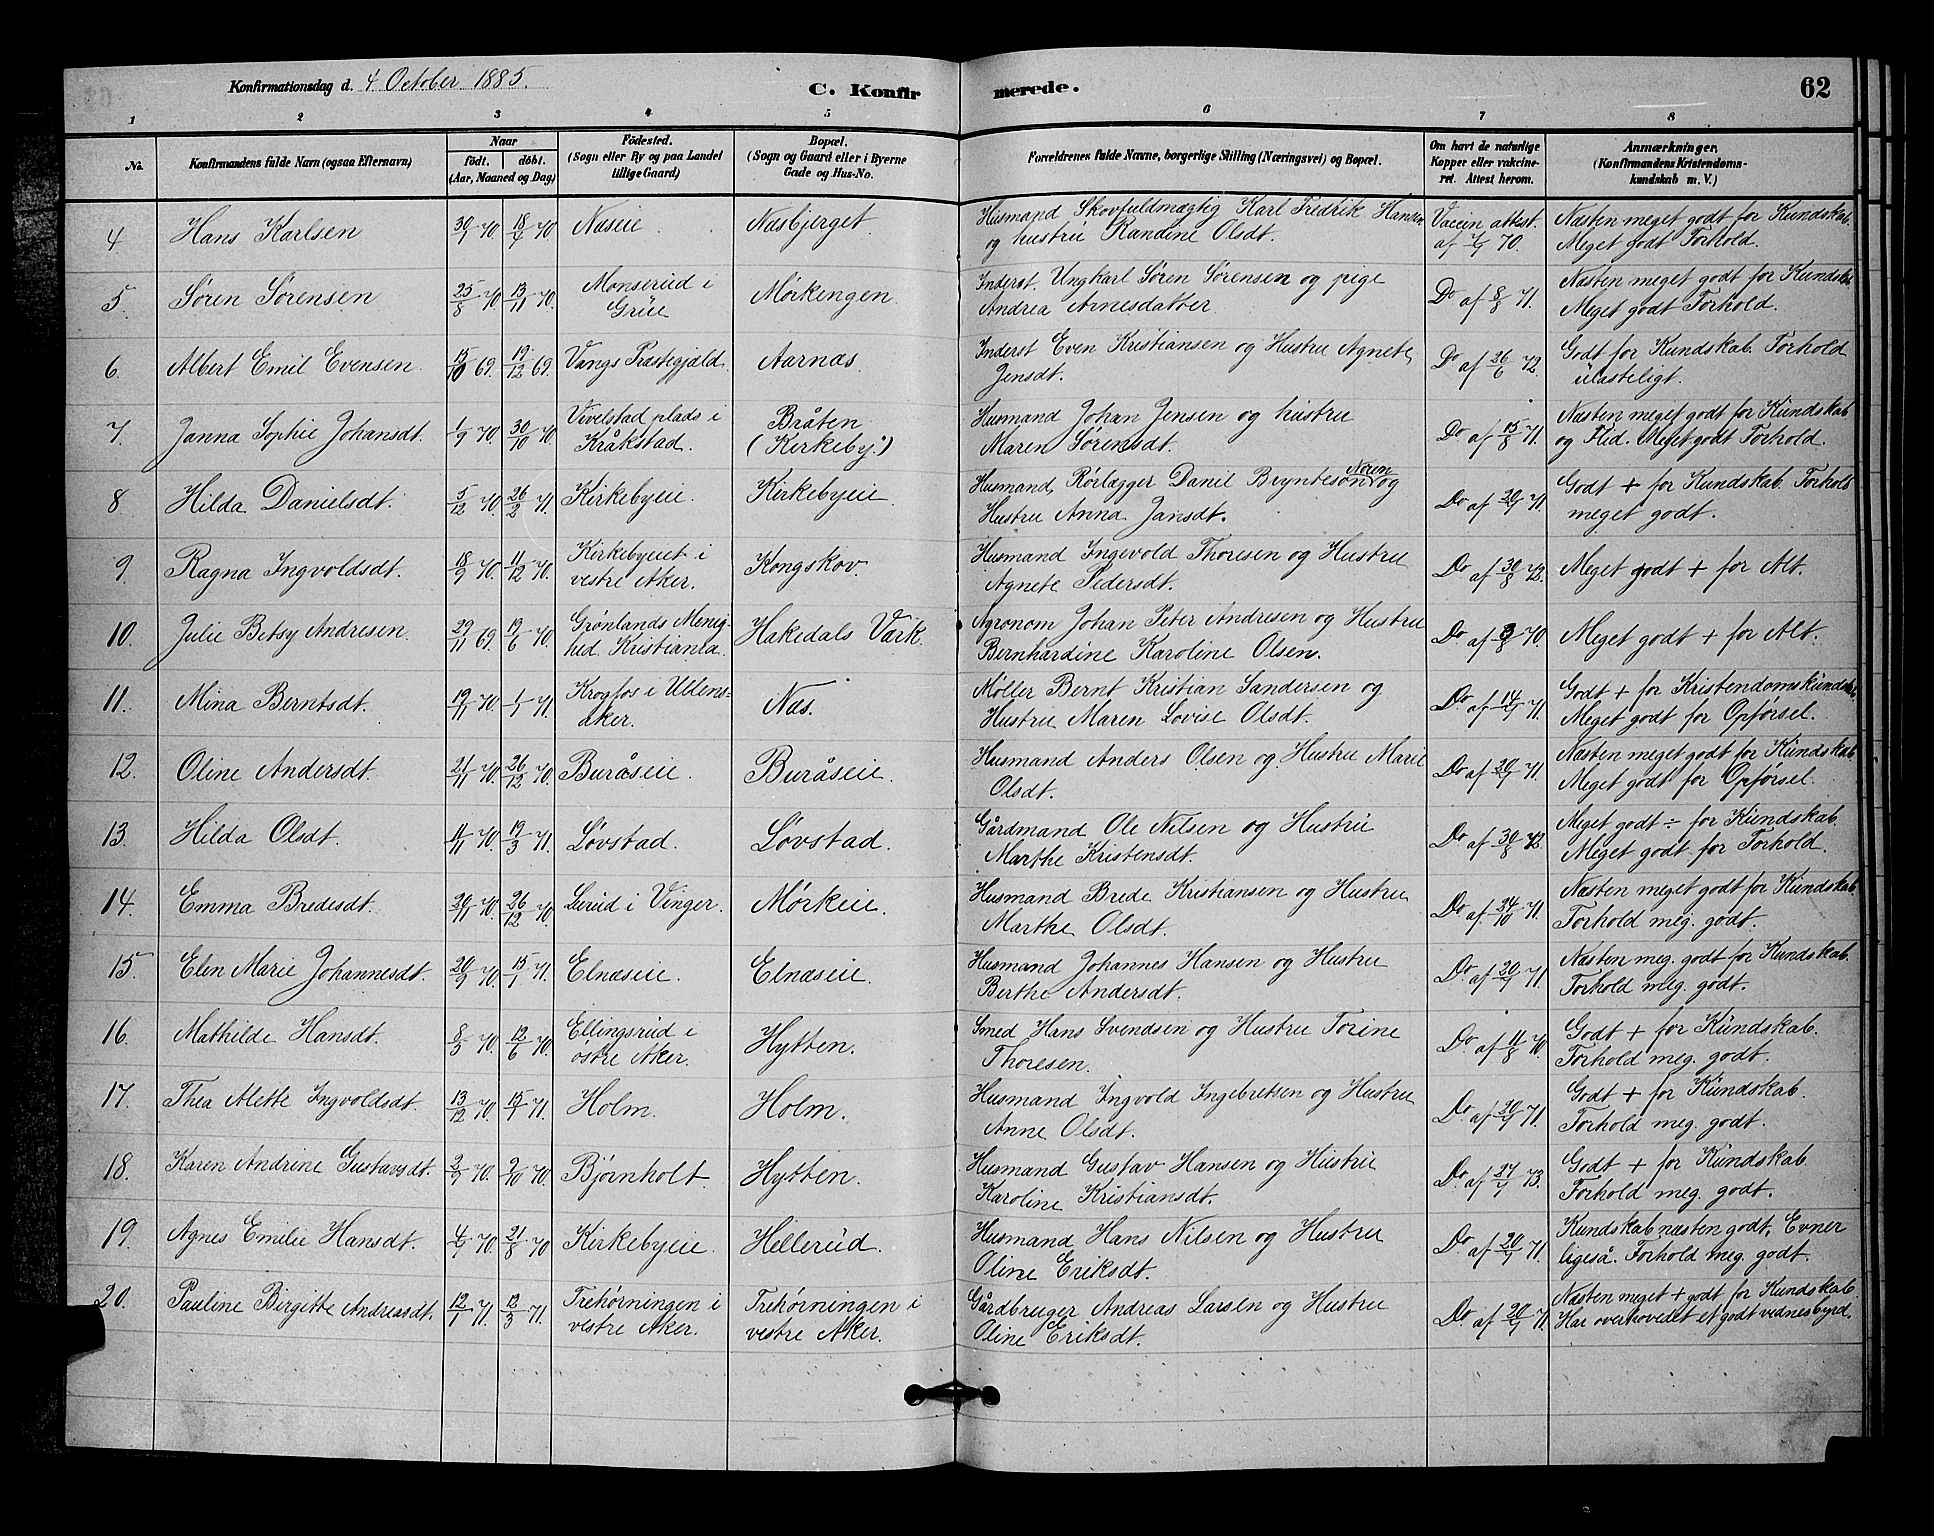 Konfirmationsdag d. 4 October 1885.
C. Konfirmerede.
62
1 2 3 4 5 6 7 8
No. Konfirmandens fulde Navn (ogsaa Efternavn) Naar født. døbt. (Aar, Maaned og Dag) Fødested. (Sogn eller By og paa Landet tillige Gaard) Bopæl. (Sogn og Gaard eller i Byerne Gade og Hus-No. Forældrenes fulde Navne, borgerlige Stilling (Næringsvei) og Bopæl. Om havt de naturlige Kopper eller vakcineret. Attest herom. Anmærkninger, (Konfirmandens Kristendomskundskab m. V.)
4 Hans Karlsen 18/4 70. Næseie. Næsbjerget. Husmand Skovfuldmægtig Karl Fredrik Hansen Vaccin. attest. Næsten meget godt for Kundskab.
og hustru Randine Olsdt. 70. Meget godt Forhold.
5 Søren Sørensen 25/8 70. 13/11 70. Monserud i Mørkengen. Inderst. Ungkarl Søren Sørensen og pige Do af 8/8 71. Næsten meget godt for Kundskab
Grue Andrea Arnesdatter Meget godt Forhold.
6. Albert Emil Evensen. 15/10 69. 19/12 69. Vangs Præstegjæld. Aarnæs. Inderst Even Kristiansen og Hustru Agnete Do af 26/6 72. Godt for Kundskab. Forhold
Jensdt. ulasteligt.
7. Janna Sophie Johansdt. 1/9 70. 30/10 70 Vevelstad plads i Bråten Husmand Johan Jensen og hustru Do af 15/8 71. Næsten meget godt for Kundskab
Kråkstad. (Kirkeby.) Maren Sørensdt. og Flid. Meget godt Forhold.
8 Hilda Danielsdt. 5/12 70 26/2 71. Kirkebyeie. Kirkebyeie Husmand, Rørlægger Daniel Bryntesøn Noren og Do af 20/7 71 Godt + for Kundskab. Forhold
Hustru Anna Jansdt. meget godt.
9. Ragna Ingvoldsdt. 18/9 70. 11/12 70. Kirkebyeiet i Kongskov. Husmand Ingevold Thoresen og Hustru Do af 30/8 72. Meget godt + for Alt.
vestre Aker. Agnete Pedersdt.
10. Julie Betsy Andresen. 29/11 69. 19/6 70 Grønlands Menighed. Kristiania. Hakedals Værk. Agronom Johan Peter Andresen og Hustru Do. af 70. Meget godt + for Alt.
Bernhardine Karoline Olsen.
11. Mina Berntsdt. 19/11 70. 1/1 71. Krogfos i Ullensaker. Næs. Møller Bernt Kristian Sandersen og Do. af 14/7 71. Godt + for Kristendomskundskab.
Hustru Maren Lovise Olsdt. Meget godt for Opførsel.
12. Oline Andersdt. 21/11 70. 26/12 70. Buråseie. Buråseie. Husmand Anders Olsen og Hustru Marie Do af 20/7 71. Næsten meget godt for Kundskab
Olsdt. Meget godt for Opførsel.
13. Hilda Olsdt. 11/11 70. 19/3 71. Løvstad. Løvstad. Gårdmand Ole Nilsen og Hustru Do af 30/8 72. Meget godt ÷ for Kundskab.
Marthe Kristensdt. Meget godt for Forhold.
14. Emma Bredesdt. 70. 26/12 70. Lerud i Vinger. Mørkeie. Husmand Brede Kristiansen og Hustru Do af 24/10 71. Næsten meget godt for Kundskab.
Marthe Olsdt. Forhold meg. godt.
15. Elen Marie Johannesdt. 20/9 70. 15/1 71. Elnæseie. Elnæseie. Husmand Johannes Hansen og Hustru Do. af 20/7 71. Næsten meg. godt for Kundskab.
Berthe Andersdt. Forhold meg. godt.
16. Mathilde Hansdt. 8/3 70. 12/6 70. Ellingsrud i Hytten. Smed Hans Svendsen og Hustru Torine Do. af 11/8 70 Godt + for Kundskab.
østre Aker. Thoresen. Forhold meg. godt.
17. Thea Alette Ingvoldsdt. 13/12 70. 15/1 71. Holm. Holm. Husmand Ingvold Ingebretsen og Hustru Do. af 20/7 71. Godt + for Kundskab.
Anne Olsdt. Forhold meg. godt.
18. Karen Andrine Gustavsdt. 2/9 70. 2/10 70. Bjørnholt. Hytten. Husmand Gustav Hansen og Hustru Do. af 24/7 73. Godt + for Kundskab.
Karoline Kristiansdt. Forhold meg. godt.
19. Agnes Emilie Hansdt. 4/7 70. 21/8 70 Kirkebyeie. Hellerud. Husmand Hans Nilsen og Hustru Do. af 20/7 71. Kundskab næsten godt, Evner
Oline Eriksdt. ligeså. Forhold meg. godt.
20. Pauline Birgitte Andreasdt. 12/1 71. 12/3 71. Trehørningen i Trehørningen i Gårdbruger Andreas Larsen og Hustru Do. af 20/7 71. Næsten meget + godt for Kundskab
vestre Aker. vestre Aker. Oline Eriksdt. Har overhovedet et godt vidnesbyrd.